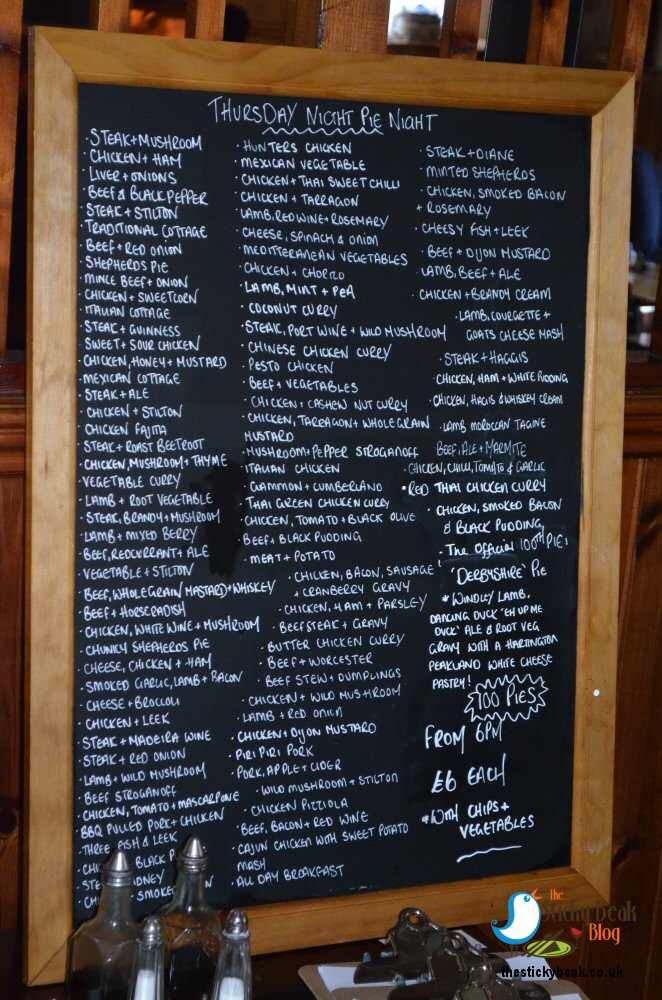 THURSDAY NIGHT PIE NIGHT
· STEAK + MUSHROOM
· CHICKEN + HAM
· LIVER + ONIONS
· BEEF & BLACK PEPPER
· STEAK + STILTON
· TRADITIONAL COTTAGE
· BEEF + RED ONION
· SHEPHERDS PIE
· MINCE BEEF + ONION
· CHICKEN + SWEETCORN
· ITALIAN COTTAGE
· STEAK + GUINNESS
· SWEET + SOUR CHICKEN
· CHICKEN, HONEY + MUSTARD
· MEXICAN COTTAGE
· STEAK + ALE
· CHICKEN + STILTON
· CHICKEN FAJITA
· STEAK + ROAST BEETROOT
· CHICKEN, MUSHROOM + THYME
· VEGETABLE CURRY
· LAMB + ROOT VEGETABLE
· STEAK, BRANDY + MUSHROOM
· LAMB + MIXED BERRY
· BEEF, REDCURRANT + ALE
· VEGETABLE + STILTON
· BEEF, WHOLEGRAIN MUSTARD + WHISKEY
· BEEF + HORSERADISH
· CHICKEN, WHITE WINE + MUSHROOM
· CHUNKY SHEPHERDS PIE
· CHEESE, CHICKEN + HAM
· SMOKED GARLIC, LAMB + BACON
· CHEESE + BROCCOLI
· CHICKEN + LEEK
· STEAK + MADEIRA WINE
· STEAK + RED ONION
· LAMB + WILD MUSHROOM
· BEEF STROGANOFF
· CHICKEN, TOMATO + MASCARPONE
· BBQ PULLED PORK + CHICKEN
· HUNTERS CHICKEN
· MEXICAN VEGETABLE
· CHICKEN + THAI SWEET CHILLI
· CHICKEN + TARRAGON
· LAMB, RED WINE + ROSEMARY
· CHEESE, SPINACH & ONION
· MEDITERRANEAN VEGETABLES
· CHICKEN + CHORIZO
· LAMB, MINT + PEA
· COCONUT CURRY
· STEAK, PORT WINE + WILD MUSHROOM
· CHINESE CHICKEN CURRY
· PESTO CHICKEN
· BEEF + VEGETABLES
· CHICKEN + CASHEW NUT CURRY
· CHICKEN, TARRAGON + WHOLEGRAIN
MUSTARD
· MUSHROOM + PEPPER STROGANOFF
· ITALIAN CHICKEN
· GAMMON + CUMBERLAND
· THAI GREEN CHICKEN CURRY
· CHICKEN, TOMATO + BLACK OLIVE
· BEEF + BLACK PUDDING
· MEAT + POTATO
· CHICKEN, BACON, SAUSAGE
+ CRANBERRY GRAVY
· CHICKEN, HAM + PARSLEY
· BEEFSTEAK + GRAVY
· BUTTER CHICKEN CURRY
· BEEF + WORCESTER
· BEEF STEW + DUMPLINGS
· CHICKEN + WILD MUSHROOM
· LAMB + RED ONION
· CHICKEN + DIJON MUSTARD
· PIRI PIRI PORK
· PORK, APPLE + CIDER
· WILD MUSHROOM + STILTON
· CHICKEN PICCIOLA
· BEEF, BACON + RED WINE
· CAJUN CHICKEN WITH SWEET POTATO
MASH
· ALL DAY BREAKFAST
· STEAK + DIANE
· MINTED SHEPHERDS
· CHICKEN, SMOKED BACON
+ ROSEMARY
· CHEESY FISH + LEEK
· BEEF + DIJON MUSTARD
· LAMB, BEEF + ALE
· CHICKEN + BRANDY CREAM
· LAMB, COURGETTE +
GOATS CHEESE HASH
· STEAK + HAGGIS
· CHICKEN, HAM + WHITE PUDDING
· CHICKEN, HAGGIS & WHISKEY CREAM
· LAMB MOROCCAN TAGINE
· CHICKEN, CHILLI, TOMATO & GARLIC
· RED THAI CHICKEN CURRY
· CHICKEN, SMOKED BACON
& BLACK PUDDING
· THE OFFICIAL 100TH PIE!
'DERBYSHIRE' PIE
DANCING DUCK 'EH UP ME
DUCK' ALE & ROOT VEG
GRAVY WITH A HARTINGTON
PEAKLAND WHITE CHEESE
PASTRY!
100 PIES!
FROM 6PM
£6 EACH
* WITH CHIPS +
VEGETABLES
the
Sticky Beak
Blog
thestickybeak.co.uk